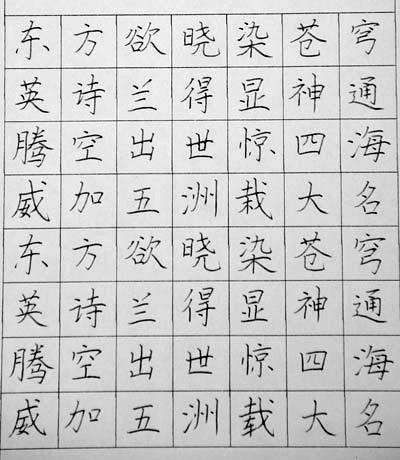 东方欲晓染苍穹
英诗兰得显神通
腾空出世惊四海
威加五洲栽大名
东方欲晓染苍穹
英诗兰得显神通
腾空出世惊四海
威加五洲载大名